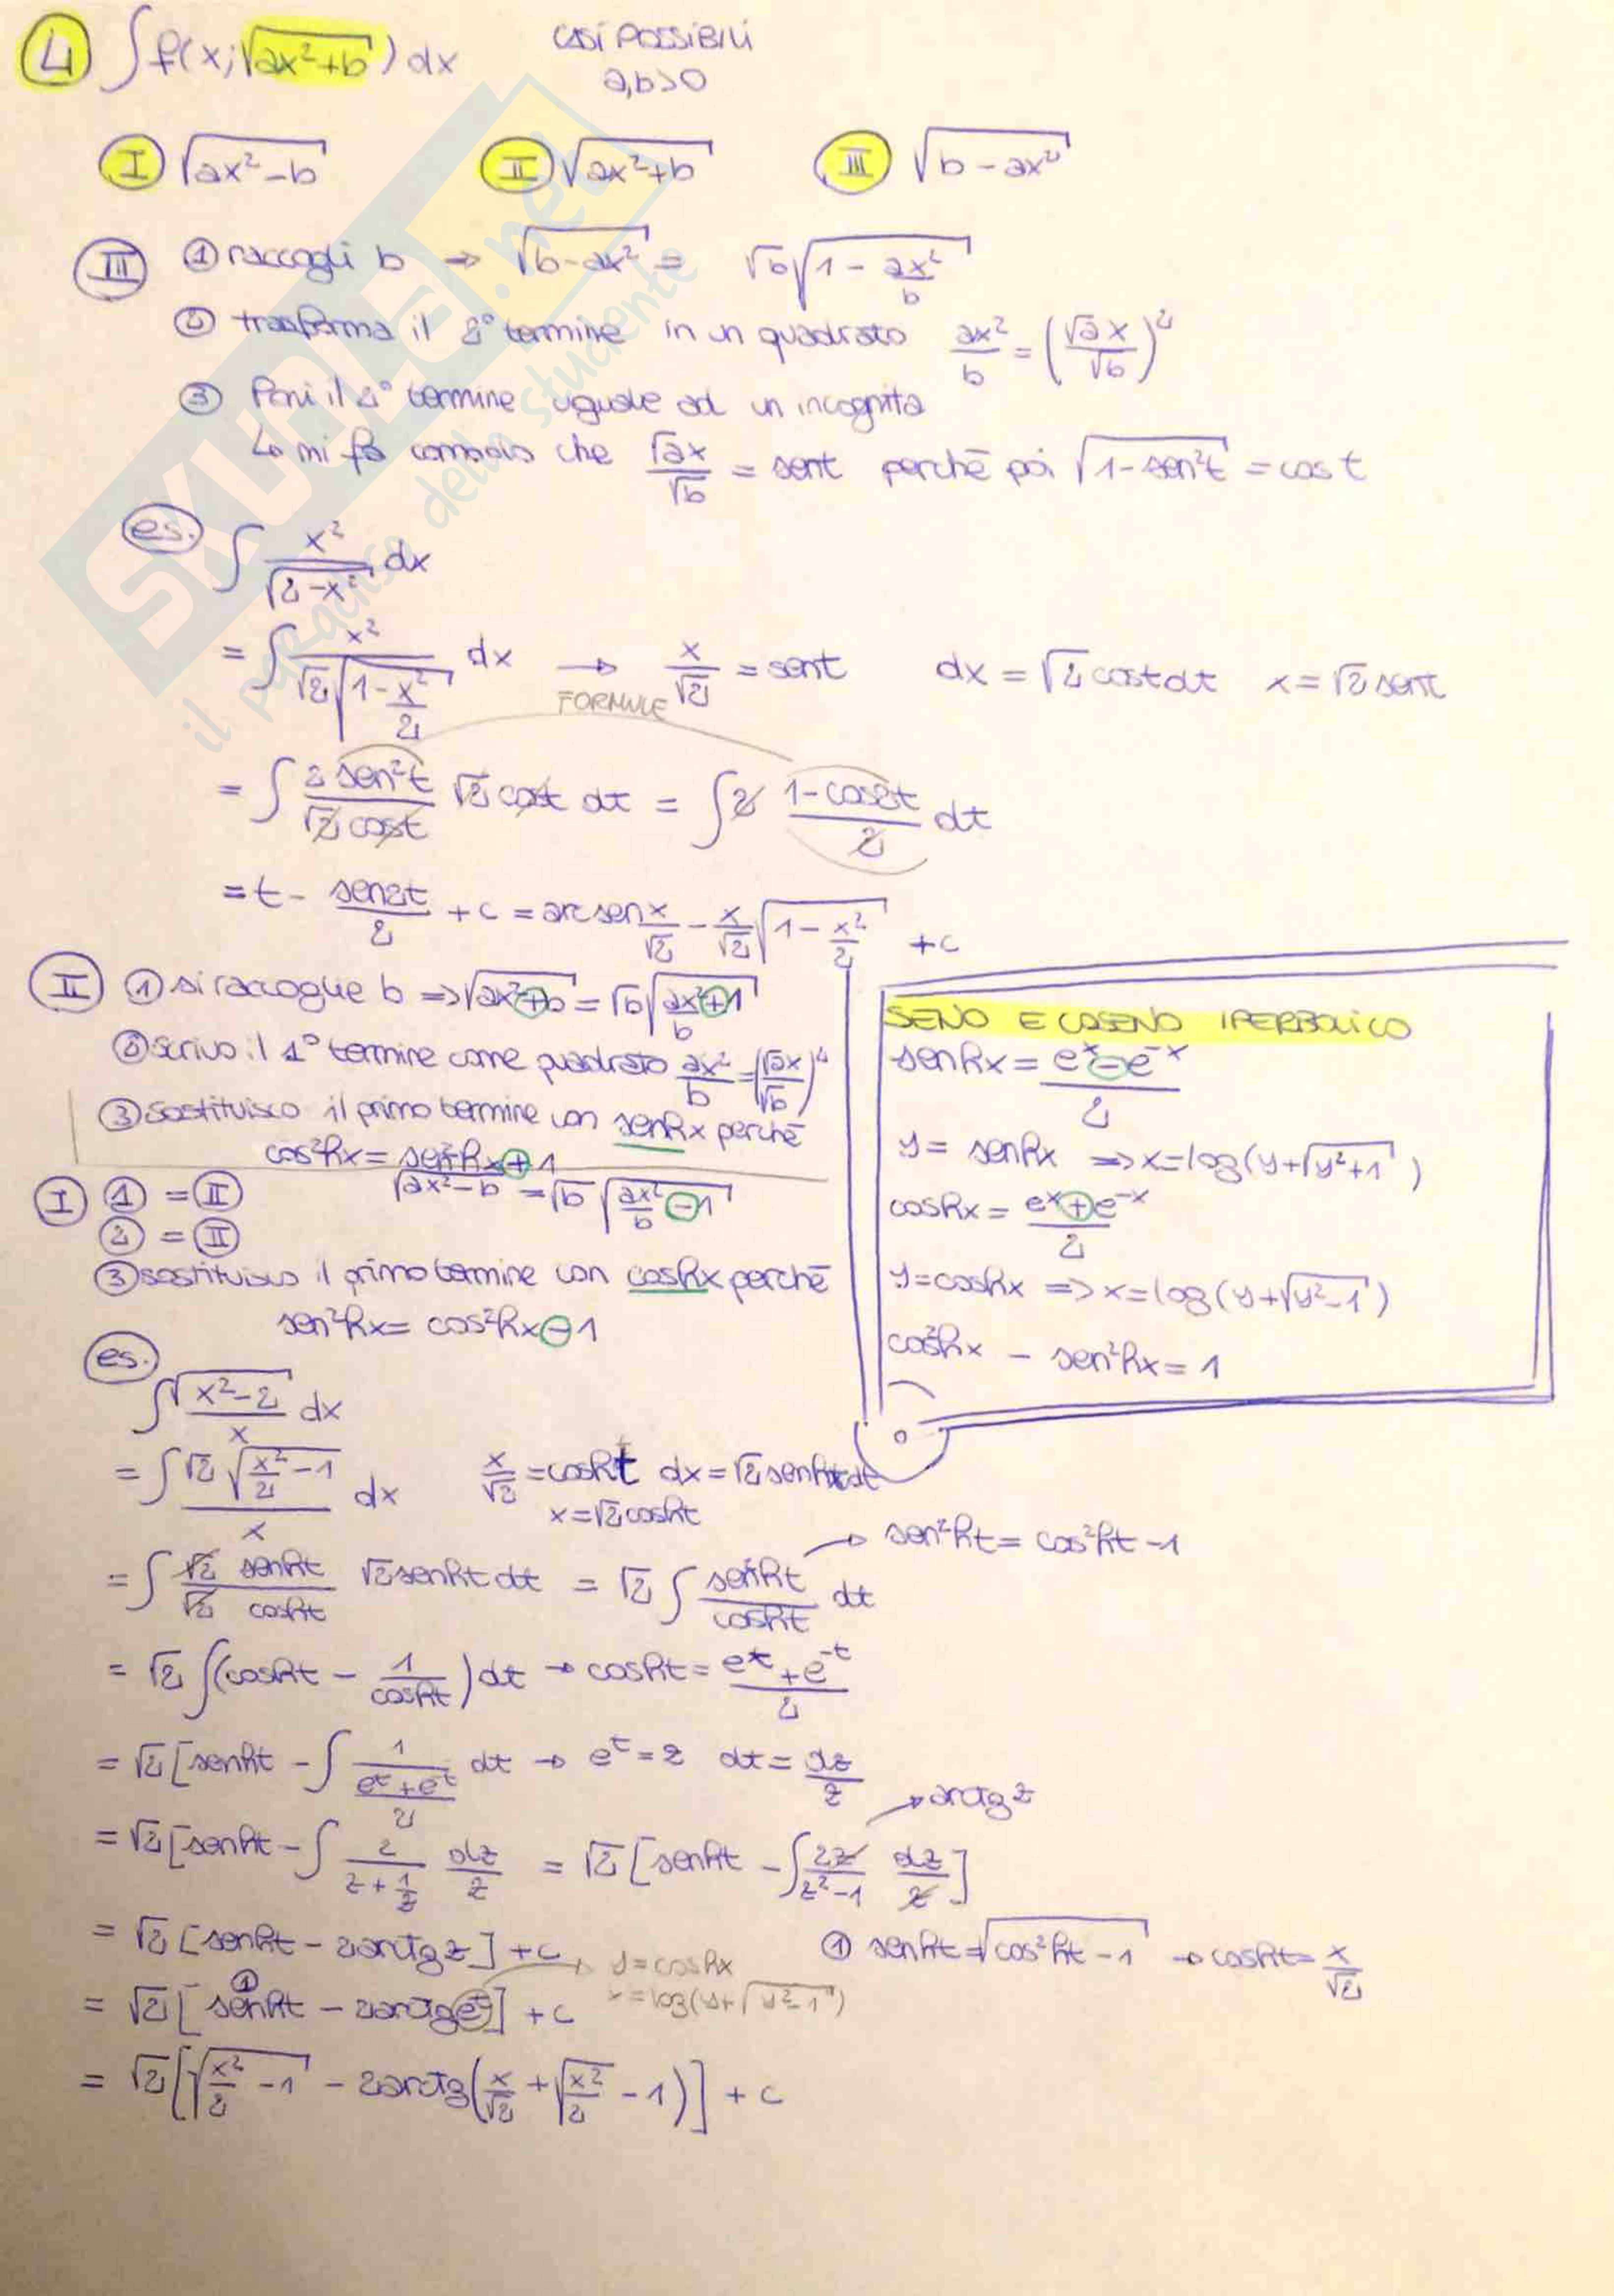 4 ∫ f(x; √(ax²+b)) dx CASI POSSIBILI
a,b>0
I √(ax²-b) II √(ax²+b) III √(b-ax²)
III ① raccogli b ⇒ √(b-ax²) = √b √(1 - ax²/b)
② trasforma il 2° termine in un quadrato ax²/b = (√a x/√b)²
③ Poni il 2° termine uguale ad un incognita
↳ mi fa comodo che √ax/√b = sent perchē poi √(1-sen²t) = cost
es. ∫ x²/√(2-x²) dx
= ∫ x²/(√2 √(1-x²/2)) dx → x/√2 = sent dx = √2 cost dt x = √2 sent
FORMULE
= ∫ 2 sen²t/(√2 cost) √2 cost dt = ∫ 2 (1-cos2t)/2 dt
= t - sen2t/2 + c = arcsen x/√2 - x/√2 √(1 - x²/2) + c
II ① si raccoglie b ⇒ √(ax²+b) = √b √(ax²/b + 1)
② scrivo il 1° termine come quadrato ax²/b = (√ax/√b)²
③ sostituisco il primo termine con senhx perchē
cos²hx = sen²hx + 1
I ① = II √(ax²-b) = √b √(ax²/b - 1)
② = II
③ sostituisco il primo termine con coshx perchē
sen²hx = cos²hx - 1
SENO E COSENO IPERBOLICO
senhx = (eˣ - e⁻ˣ)/2
y = senhx ⇒ x = log(y+√(y²+1))
coshx = (eˣ + e⁻ˣ)/2
y = coshx ⇒ x = log(y+√(y²-1))
cos²hx - sen²hx = 1
es. ∫ √(x²-2)/x dx
= ∫ √2 √(x²/2 - 1)/x dx x/√2 = cosht dx = √2 senht dt
x = √2 cosht
= ∫ (√2 senht)/(√2 cosht) √2 senht dt = √2 ∫ sen²ht/cosht dt → sen²ht = cos²ht - 1
= √2 ∫ (cosht - 1/cosht) dt → cosht = (eᵗ + e⁻ᵗ)/2
= √2 [senht - ∫ 1/((eᵗ + e⁻ᵗ)/2) dt → eᵗ = z dt = dz/z
= √2 [senht - ∫ 2/(z + 1/z) dz/z = √2 [senht - ∫ 2z/(z²-1) dz/z] → arctg z
= √2 [senht - 2arctg z] + c ① senht = √(cos²ht - 1) → cosht = x/√2
y = coshx
x = log(y+√(y²-1))
= √2 [① senht - 2arctg eᵗ] + c
= √2 [√(x²/2 - 1) - 2arctg(x/√2 + √(x²/2 - 1))] + c
SKUOLA.net
il paradiso dello studente